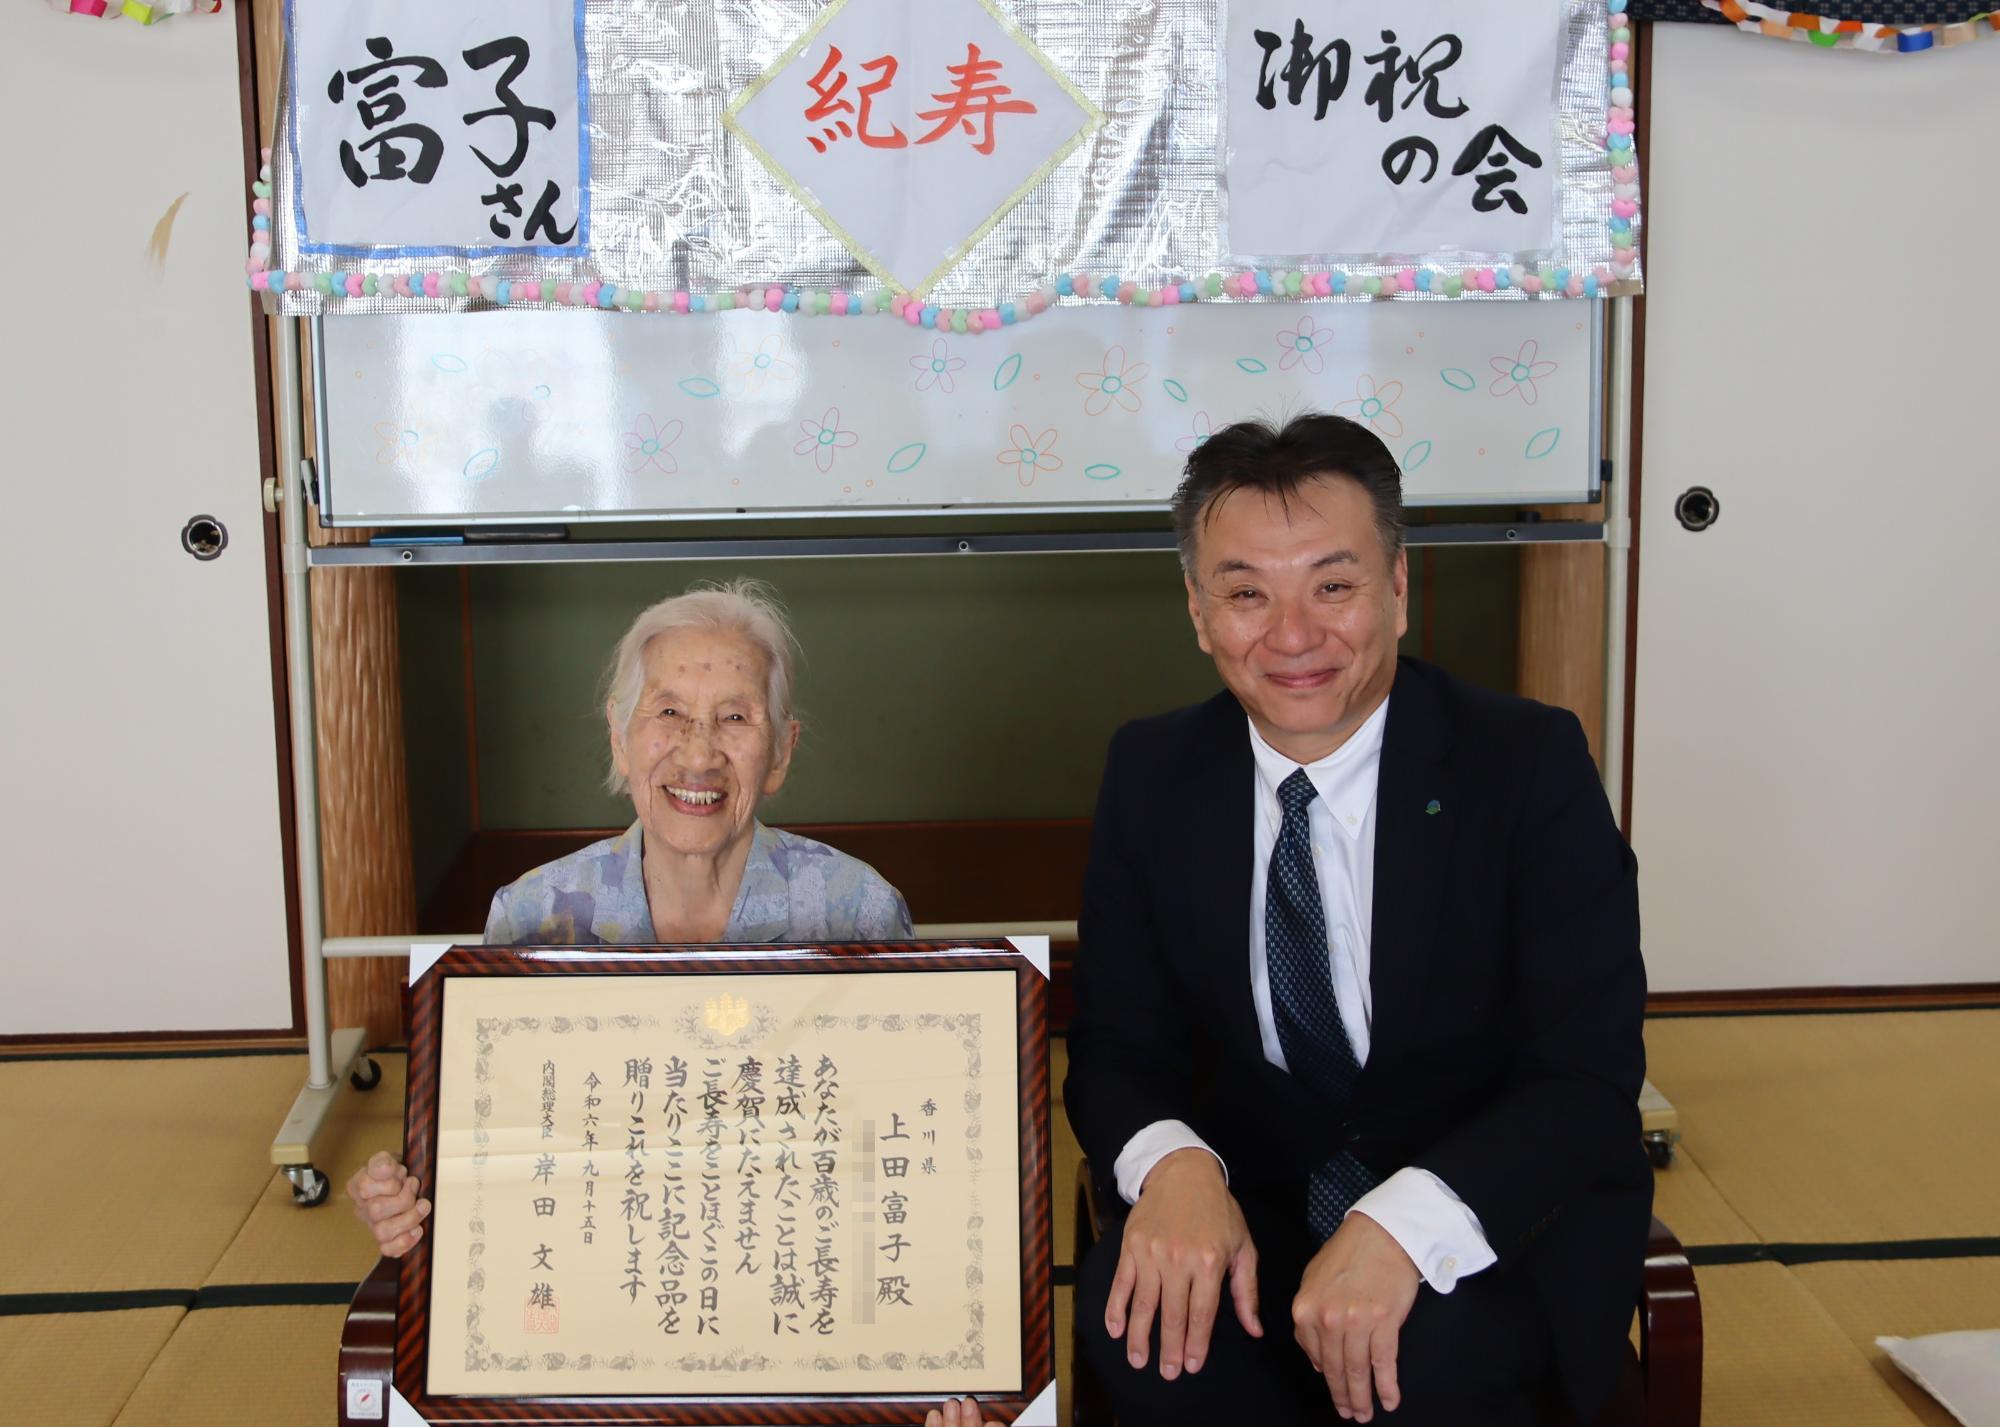 富子
さん
紀寿
御祝
の会
香川県
上田富子殿
あなたが百歳のご長寿を
達成されたことは誠に
慶賀にたえません
ご長寿をことほぐこの日に
当たりここに記念品を
贈りこれを祝します
令和六年九月十五日
内閣総理大臣 岸田文雄